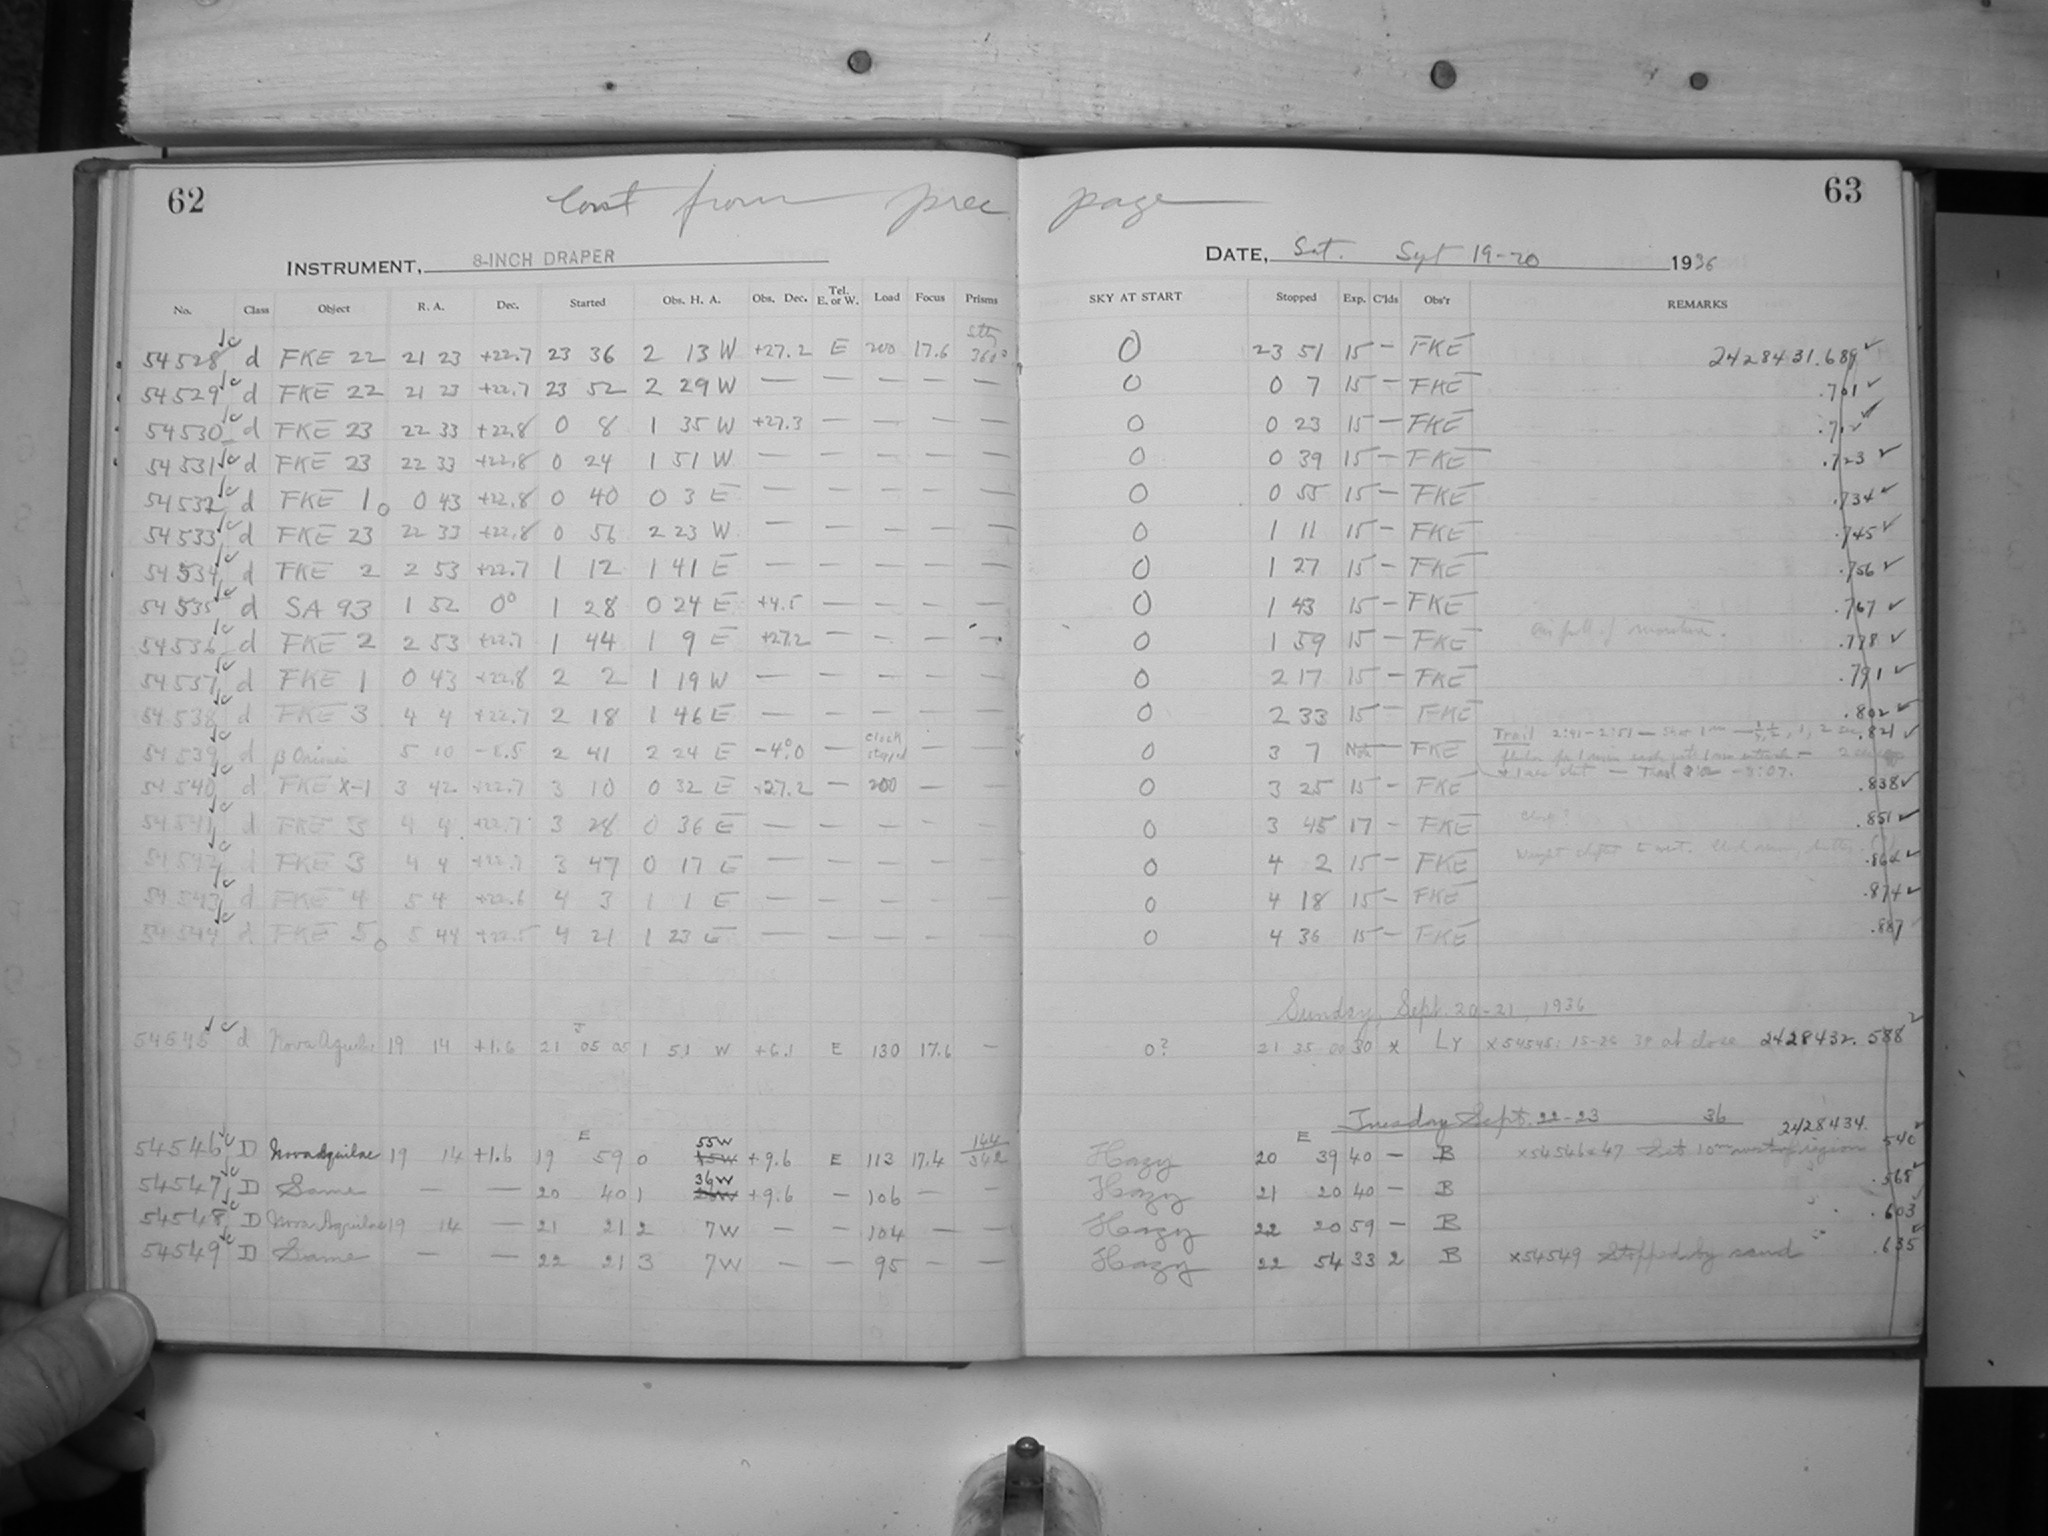 62 Cont from prec page 63
INSTRUMENT, 8-INCH DRAPER DATE, Sat. Sept 19-20 1936
No. Class Object R. A. Dec. Started Obs. H. A. Obs. Dec. Tel. E. or W. Load Focus Prisms SKY AT START Stopped Exp. C'lds Obs'r REMARKS
54528 d FKE 22 21 23 +22.7 23 36 2 13 W +27.2 E 200 17.6 360° 0 23 51 15 — FKE 2428431.689
54529 d FKE 22 21 23 +22.7 23 52 2 29 W — — — — — 0 0 7 15 — FKE .701
54530 d FKE 23 22 33 +22.8 0 8 1 35 W +27.3 — — — — 0 0 23 15 — FKE .712
54531 d FKE 23 22 33 +22.8 0 24 1 51 W — — — — — 0 0 39 15 — FKE .723
54532 d FKE 1 0 43 +22.8 0 40 0 3 E — — — — — 0 0 55 15 — FKE .734
54533 d FKE 23 22 33 +22.8 0 56 2 23 W — — — — — 0 1 11 15 — FKE .745
54534 d FKE 2 2 53 +22.7 1 12 1 41 E — — — — — 0 1 27 15 — FKE .756
54535 d SA 93 1 52 0° 1 28 0 24 E +4.5 — — — — 0 1 43 15 — FKE .767
54536 d FKE 2 2 53 +22.7 1 44 1 9 E +27.2 — — — — 0 1 59 15 — FKE Air full of moisture. .778
54537 d FKE 1 0 43 +22.8 2 2 1 19 W — — — — — 0 2 17 15 — FKE .791
54538 d FKE 3 4 4 +22.7 2 18 1 46 E — — — — — 0 2 33 15 — FKE .802
54539 d β Orionis 5 10 -8.5 2 41 2 24 E -4.0 — clock stopped — — 0 3 7 — FKE Trail 2:41-2:51 — .821
Trail 3:02 - 3:07.
54540 d FKE X-1 3 42 +22.7 3 10 0 32 E +27.2 — 200 — — 0 3 25 15 — FKE .838
54541 d FKE 3 4 4 +22.7 3 28 0 36 E — — — — — 0 3 45 17 — FKE .851
54542 d FKE 3 4 4 +22.7 3 47 0 17 E — — — — — 0 4 2 15 — FKE .864
54543 d FKE 4 5 4 +22.6 4 3 1 1 E — — — — — 0 4 18 15 — FKE .874
54544 d FKE 5 5 44 +22.5 4 21 1 23 E — — — — — 0 4 36 15 — FKE .887
Sunday, Sept. 20-21, 1936
54545 d Nova Aquilae 19 14 +1.6 21 05 05 1 51 W +6.1 E 130 17.6 — 0? 21 35 00 30 x Ly x54545: at close 2428432.588
Tuesday Sept. 22-23 36 2428434.
54546 D Nova Aquilae 19 14 +1.6 19 59 0 55W +9.6 E 113 17.4 144 342 Hazy 20 39 40 — B x54546-47 Set 10m west of region .540
54547 D Same — — 20 40 1 +9.6 — 106 — — Hazy 21 20 40 — B .568
54548 D Nova Aquilae 19 14 — 21 21 2 7W — — 104 — — Hazy 22 20 59 — B .603
54549 D Same — — 22 21 3 7W — — 95 — — Hazy 22 54 33 2 B x54549 Stopped by sand .635